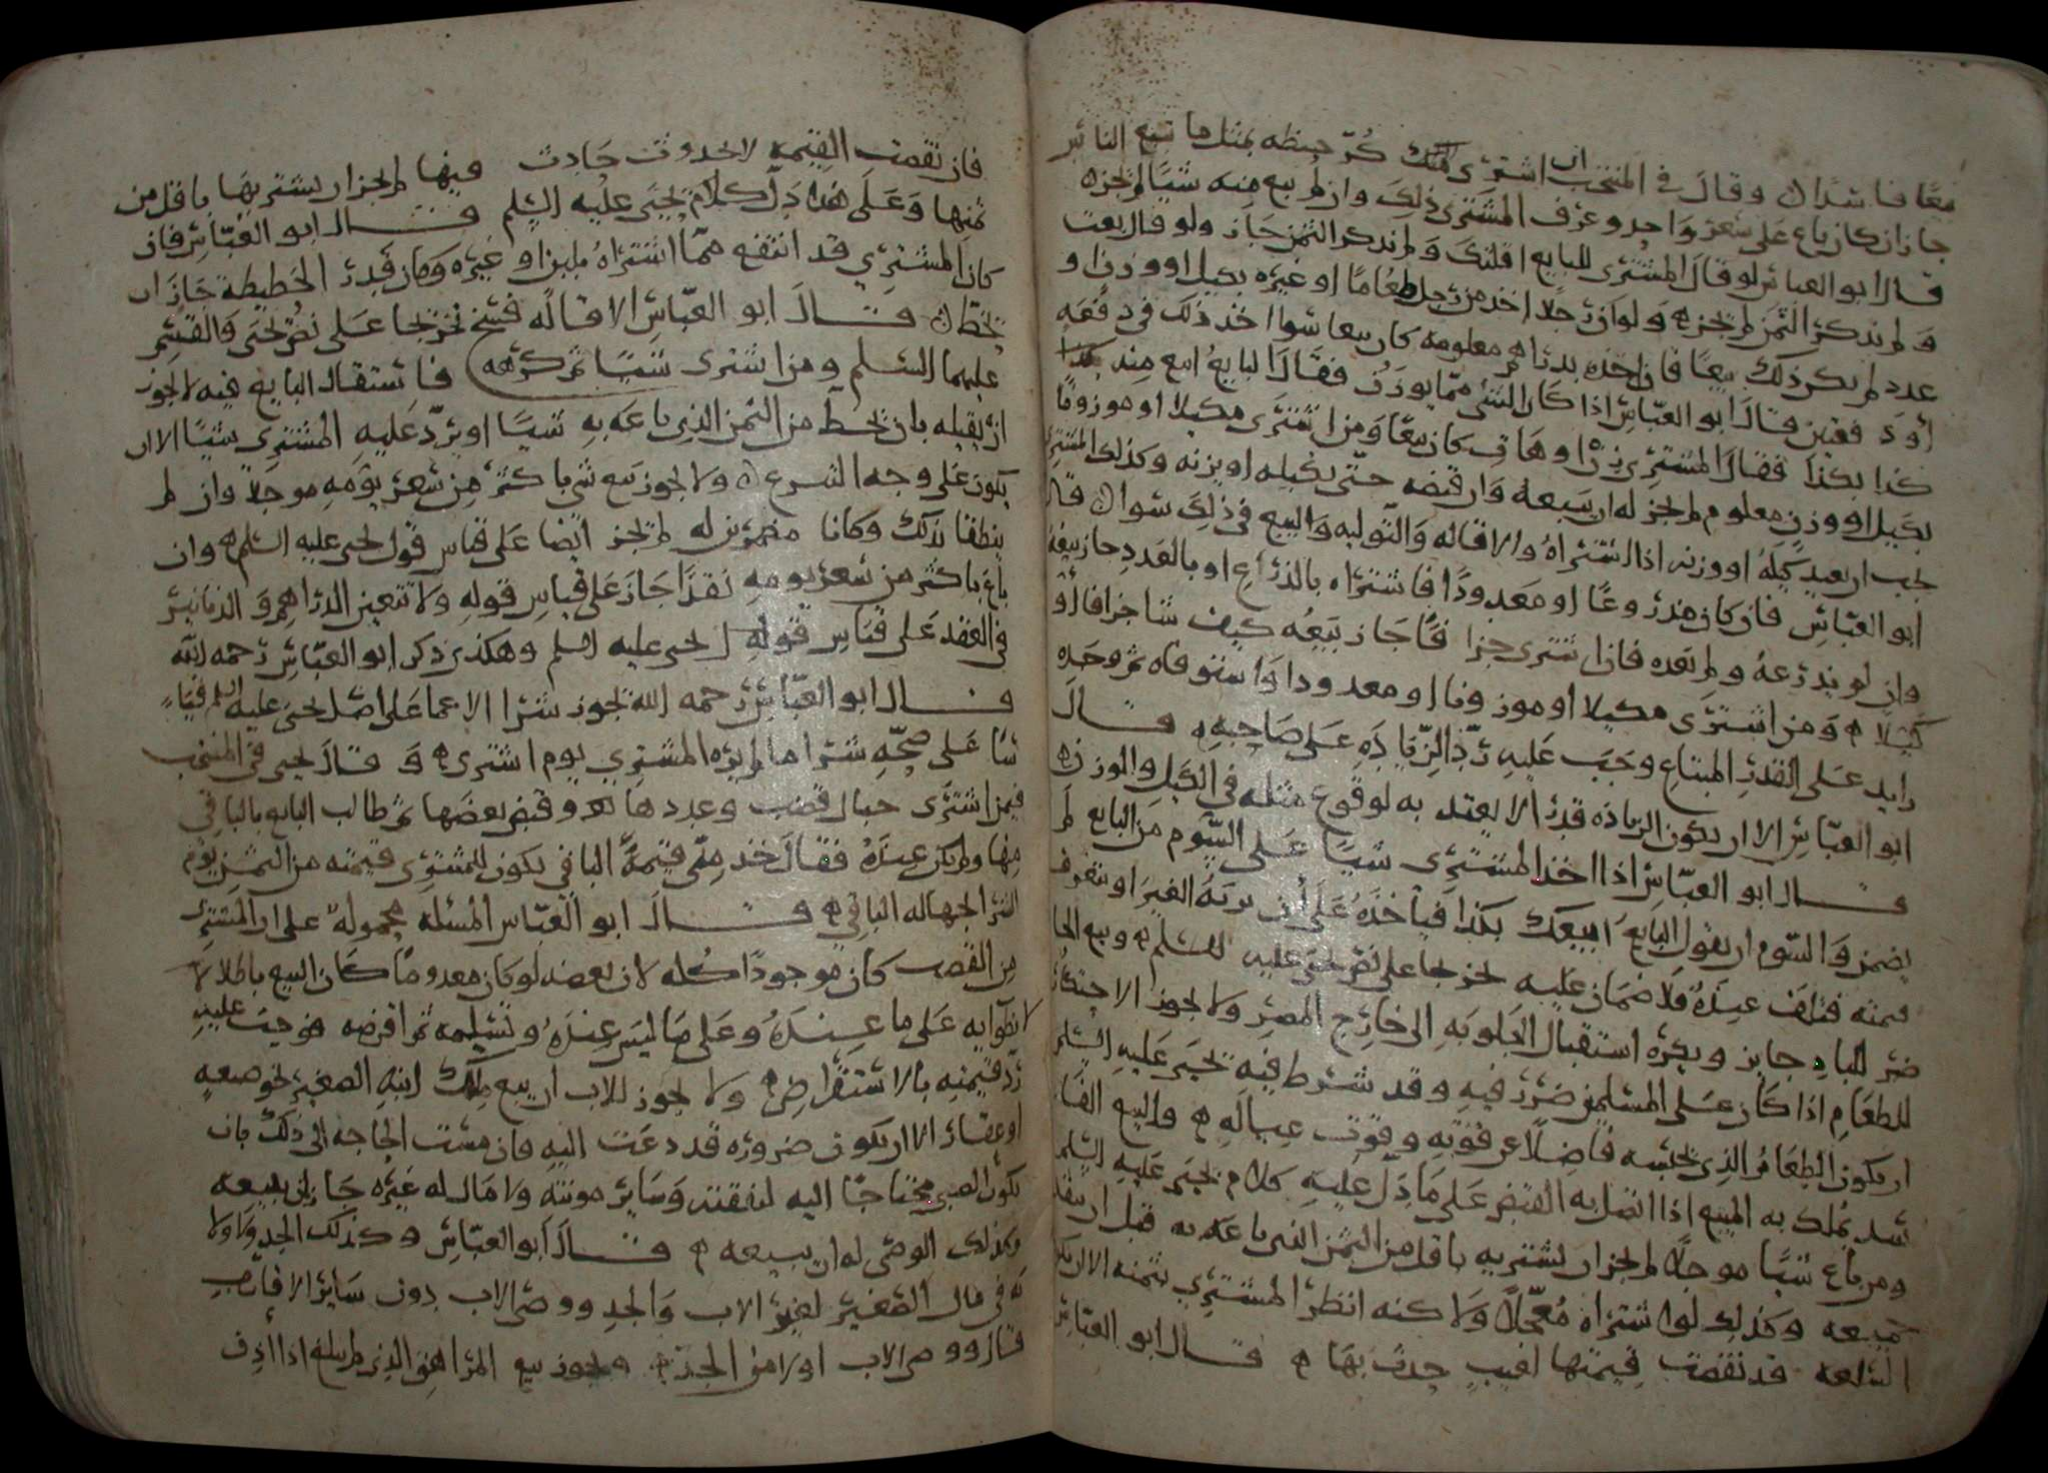 معًا فاسدان وقال في المنتخب ان اشترى منك كُرّ حنطه بمثل ما تبيع الناس
جاز ان كان باع على سعر واحد وعرف المشترى ذلك وان لم يبع منه شيا لم يجزه
قال ابو العباس لو قال المشترى للبايع اقلتك ولم يذكر الثمن جاز ولو قال بعت
ولم يذكر الثمن لم يجزه ولو ان رجلا اخذ من رجل طعاما او غيره بكيل او وزن او
عدد لم يكن ذلك بيعًا فان اخذه بدراهم معلومه كان بيعا سوا اخذ ذلك في دفعه
او دفعتين قال ابو العباس اذا كان الشى مما يوزن فقال البايع ابيع منه كذا
كذا بكذا فقال المشترى زن او هات كان بيعًا ومن اشترى مكيلا او موزونًا
بكيل او وزن معلوم لم يجز له ان يبيعه وان قبضه حتى يكيله او يزنه وكذلك المشترى
يجب ان يعيد كيله او وزنه اذا اشتراه والاقاله والتوليه والبيع في ذلك سوان قال
ابو العباس فان كان مذروعًا او معدودًا فاشتراه بالذراع او بالعدد جاز بيعه
وان لم يذرعه ولم يعده فاذا اشترى جزافًا جاز بيعه كيف شا جزافا او
كيلا ه ومن اشترى مكيلا او موزونا او معدودا واستوفاه ثم وجده
زايد على القدر المبتاع وجب عليه رد الزياده على صاحبه ه قال
ابو العباس الا ان يكون الزياده قدرًا لا يعتد به لوقوع مثله في الكيل والوزن ه
قال ابو العباس اذا اخذ المشترى شيا على السوم من البايع لم
يضمن والسوم ان يقول البايع ابيعك بكذا فياخذه على ان يريه الغير او يتعرف
قيمته فتلف عنده فلا ضمان عليه تخريجا على نص يحيى عليه السلم ه وبيع الحا
ضر للباد جايز ويكره استقبال الجلوبه الى خارج المصر ولا يجوز الاحتكار
للطعام اذا كان على المسلمين ضرر فيه وقد شرط فيه يحيى عليه السلم
ان يكون الطعام الذى يحبسه فاضلا عن قوته وقوت عياله ه والبيع الفا
سد يملك به المبيع اذا اتصل به القبض على ما دل عليه كلام يحيى عليه السلم
ومن باع شيًا موجلا لم يجز ان يشتريه باقل من الثمن الذى باعه به قبل ان ينقد
ثمنه وكذلك لو اشتراه معجلا ولا كنه انظر المشترى بثمنه الا ان يكون
السلعه قد نقصت قيمتها لعيب حدث بها ه قال ابو العباس
فان نقصت القيمه لا لحدوث حادث فيها لم يجز ان يشتريها باقل من
ثمنها وعلى هذا دل كلام يحيى عليه السلم قال ابو العباس فان
كان المشترى قد انتفع مما اشتراه بلبن او غيره وكان قدر الحطيطه جاز ان
يحط ان قال ابو العباس الاقاله فسخ تخريجا على نص يحيى والقسم
عليهما السلم ومن اشترى شيًا ثم كرهه فاستقال البايع فيه لا يجوز
ان يقيله بان يحط من الثمن الذى باعه به شيًا او يرد عليه المشترى شيًا الا ان
يكون على وجه الشرع ن ولا يجوز بيع شى باكثر من سعر يومه موجلا وان لم
ينطقا بذلك وكانا مضمرين له لم يجز ايضا على قياس قول يحيى عليه السلم ه وان
باع باكثر من سعر يومه نقدًا جاز على قياس قوله ولا تتعين الدراهم والدنانير
في العقد على قياس قوله يحيى عليه السلم وهكذى ذكر ابو العباس رحمه الله
قال ابو العباس رحمه الله يجوز شرا الاعما على اصل يحيى عليه السلم قيا
سًا على صحه شرا ما لم يره المشترى يوم اشترى ه وقال يحيى في المنتخب
فيمن اشترى حبال قصب وعددها وقبض بعضها ثم طالب البايع بالباقي
منها ولم يكن عنده فقال خذ منى قيمة الباقي يكون للمشترى قيمته من الثمن يوم
الشرا لجهاله الباقي ه قال ابو العباس المسئله محموله على ان المشترى
من القصب كان موجودًا كله لان بعضه لو كان معدومًا كان البيع باطلا لا
لانطوايه على ما عنده وعلى ما ليس عنده وتسليمه ثم اقرضه فوجب عليه
رد قيمته بالاستقراض ه ولا يجوز للاب ان يبيع ملك ابنه الصغير نحو ضيعه
او عقار الا ان يكون ضروره قد دعت اليه فان مست الحاجه الى ذلك بان
يكون الصبى محتاجًا اليه لنفقته وساير مونته ولا مال له غيره جاز ان يبيعه
وكذلك الوصى له ان يبيعه ه قال ابو العباس وكذلك الجد ولا ولا
يه في مال الصغير لغير الاب والجد ووصى الاب دون ساير الاقارب
قال ووصى الاب اولا من الجد ه ويجوز بيع المراهق الذى لم يبلغ اذا اذن